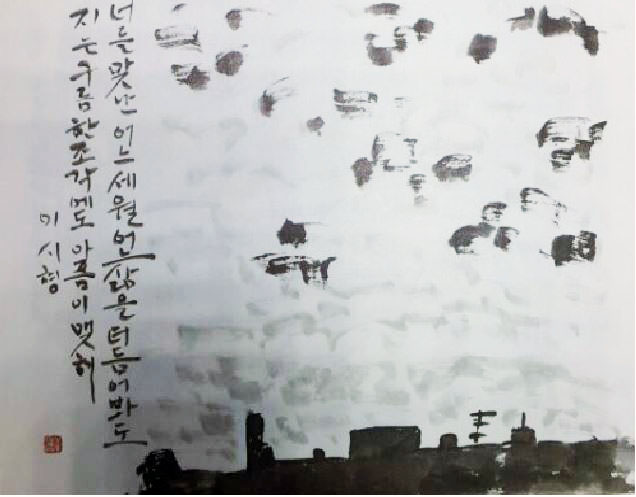 너를 맞난 어느 세월 언 삶을 더듬어 봐도
지는 구름 한조각에도 아픔이 맺혀
이시형